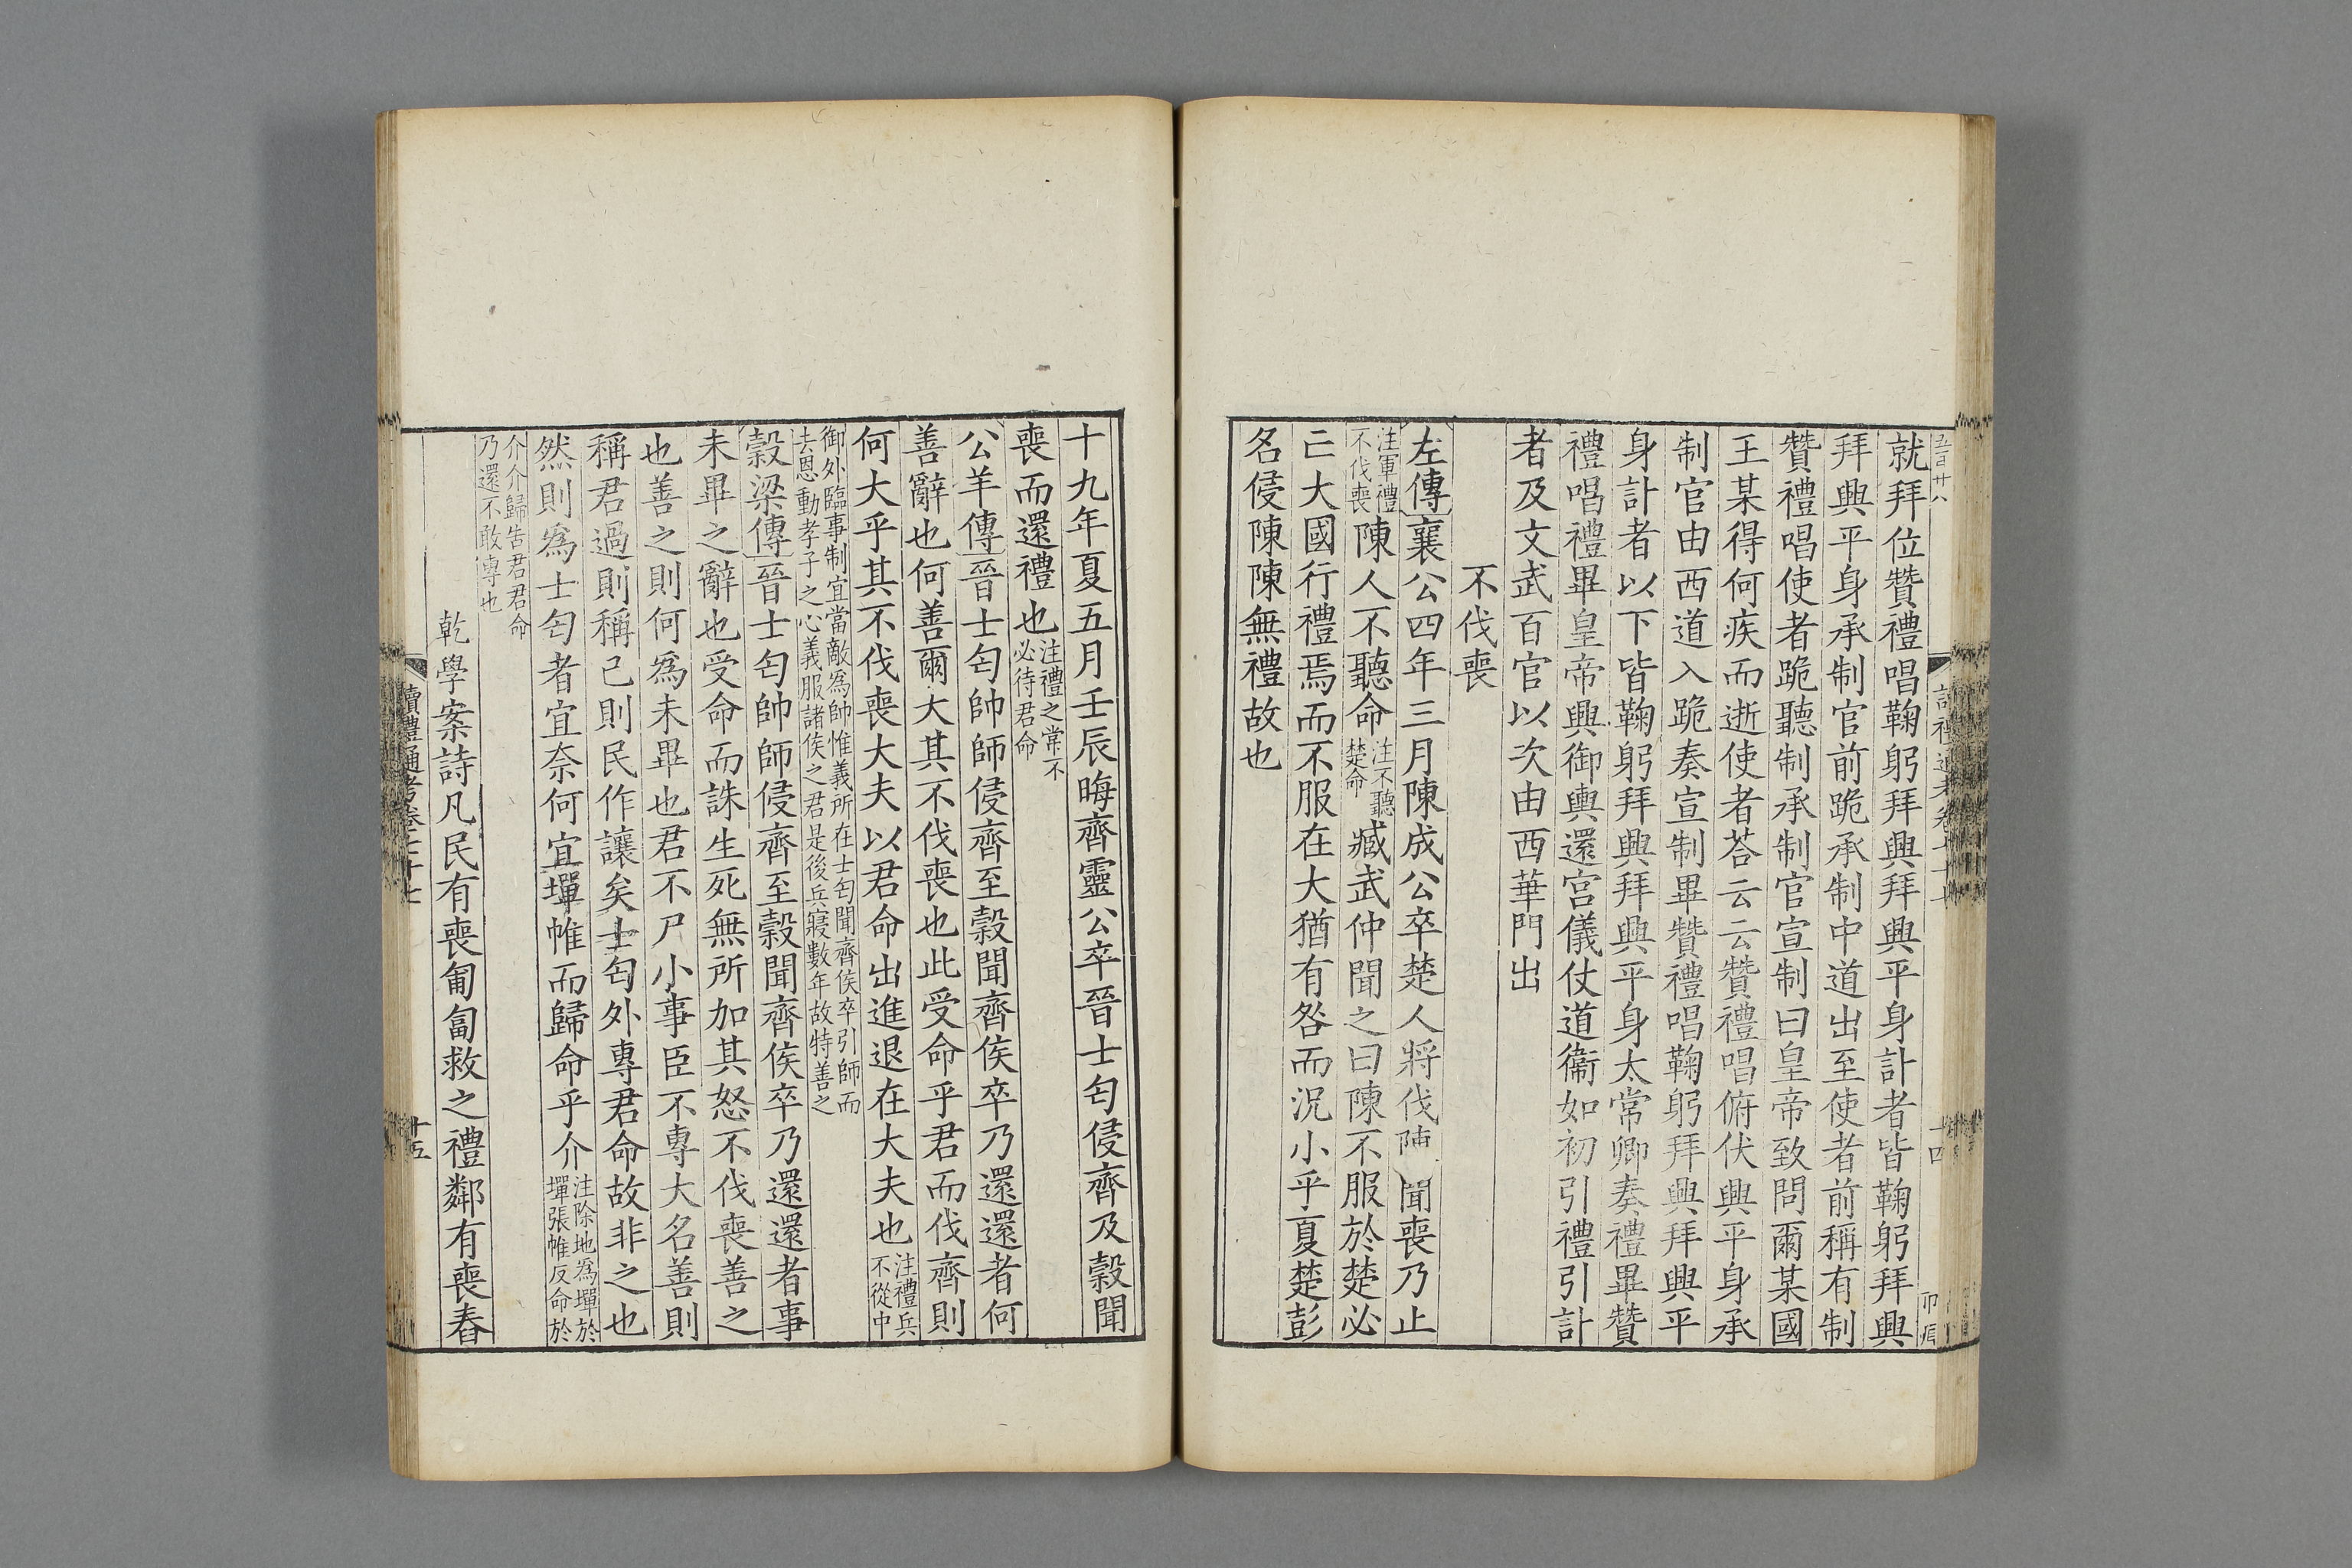 就拜位贊禮唱鞠躬拜興拜興平身計者皆鞠躬拜興
拜興平身承制官前跪承制中道出至使者前稱有制
贊禮唱使者跪聽制承制官宣制曰皇帝致問爾某國
王某得何疾而逝使者荅云云贊禮唱俯伏興平身承
制官由西道入跪奏宣制畢贊禮唱鞠躬拜興拜興平
身計者以下皆鞠躬拜興拜興平身太常卿奏禮畢贊
禮唱禮畢皇帝興御輿還宮儀仗道衞如初引禮引計
者及文武百官以次由西華門出
不伐喪
左傳襄公四年三月陳成公卒楚人將伐陳聞喪乃止
注軍禮
不伐喪
陳人不聽命
注不聽
楚命
臧武仲聞之曰陳不服於楚必
亡大國行禮焉而不服在大猶有咎而況小乎夏楚彭
名侵陳陳無禮故也
十九年夏五月壬辰晦齊靈公卒晉士匄侵齊及穀聞
喪而還禮也
注禮之常不
必待君命
公羊傳晉士匄帥師侵齊至穀聞齊侯卒乃還還者何
善辭也何善爾大其不伐喪也此受命乎君而伐齊則
何大乎其不伐喪大夫以君命出進退在大夫也
注禮兵
不從中
御外臨事制宜當敵爲帥惟義所在士匄聞齊侯卒引師而
去恩動孝子之心義服諸侯之君是後兵寢數年故特善之
穀梁傳晉士匄帥師侵齊至穀聞齊侯卒乃還還者事
未畢之辭也受命而誅生死無所加其怒不伐喪善之
也善之則何爲未畢也君不尸小事臣不專大名善則
稱君過則稱己則民作讓矣士匄外專君命故非之也
然則爲士匄者宜奈何宜墠帷而歸命乎介
注除地爲墠於
墠張帷反命於
介介歸告君君命
乃還不敢專也
乾學案詩凡民有喪匍匐救之禮鄰有喪舂
讀禮通考卷七十七
十五